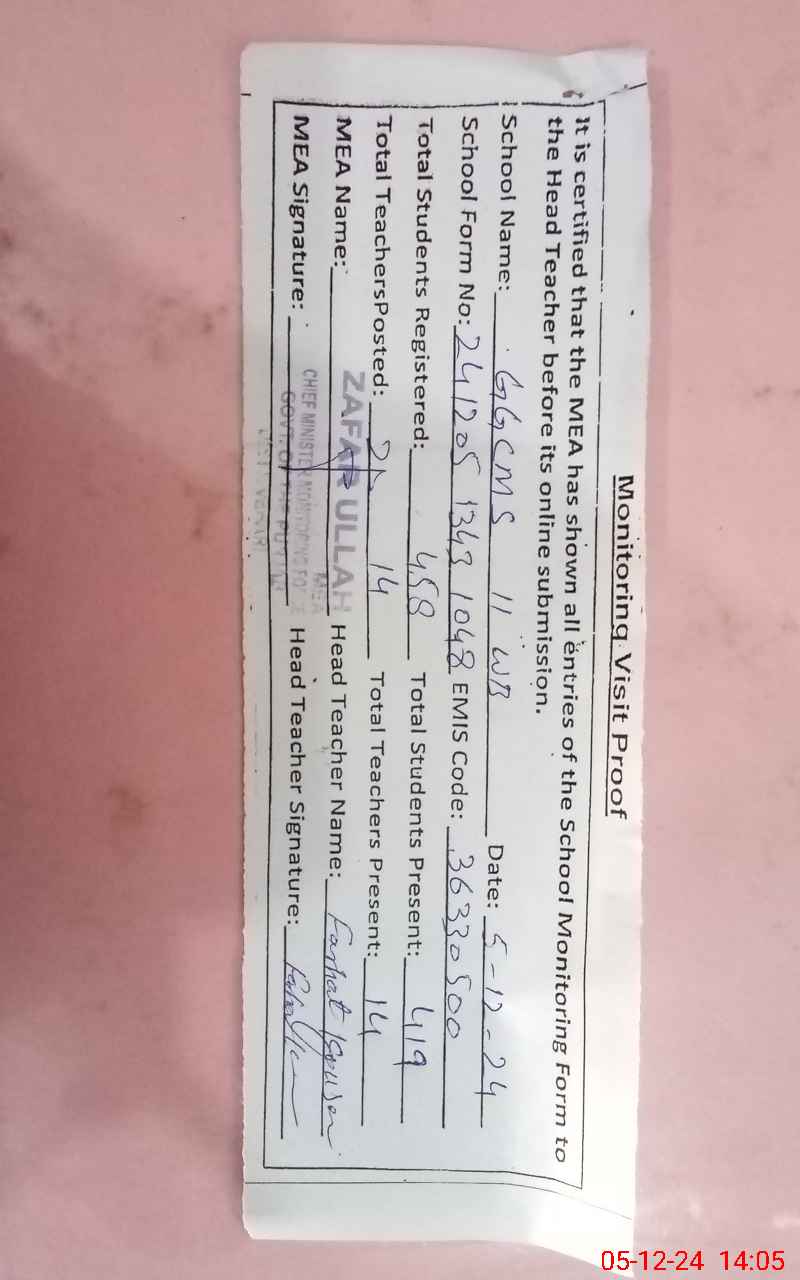 Monitoring Visit Proof
It is certified that the MEA has shown all entries of the School Monitoring Form to
the Head Teacher before its online submission.
School Name: GGCMS 11 WB Date: 5-12-24
School Form No: 241205 1343 1048 EMIS Code: 36330500
Total Students Registered: 458 Total Students Present: 419
Total TeachersPosted: 14 Total Teachers Present: 14
MEA Name: ZAFAR ULLAH Head Teacher Name: Farhat
MEA
MEA Signature: CHIEF MINISTER MONITORING Head Teacher Signature:
GOVT. OF THE
05-12-24 14:05